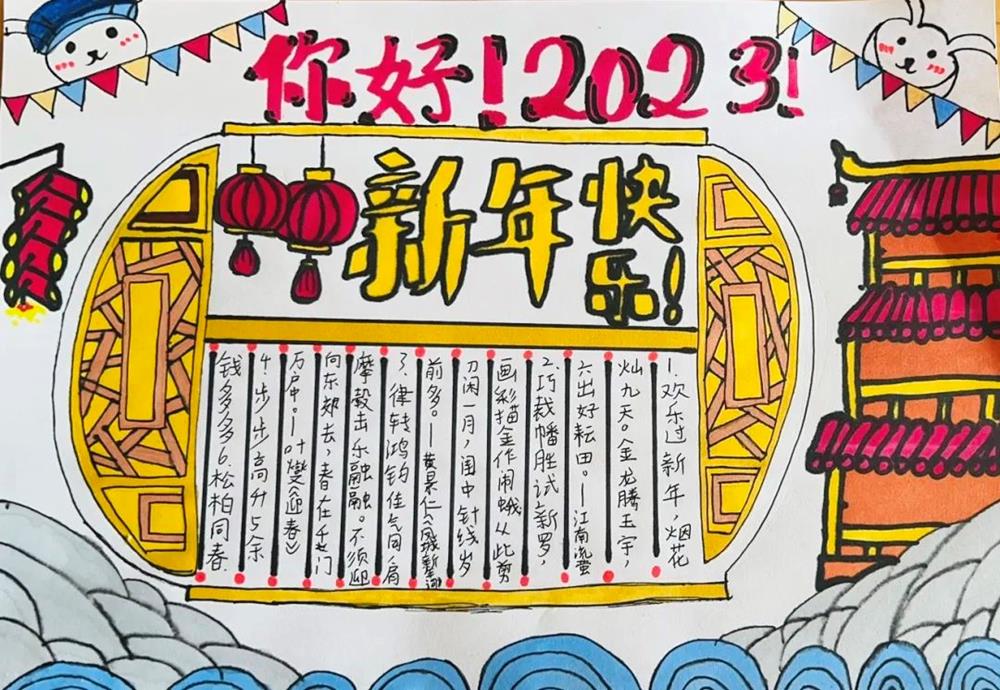 你好!2023!
新年快
乐!
1.欢乐过新年,烟花
灿九天。《金龙腾玉宇,
六出好耘田。—江南
2.巧裁幡胜试新罗,
画彩描金作闹蛾从此剪
刀闲一月,闺中针线岁
前多。—黄景仁《
3.律转鸿钧佳气同,肩
摩毂击乐融融。不须迎
向东郊去,春在千门
万户中。—叶燮《迎春》
4.步步高升5.余
钱多多多6.松柏同春.